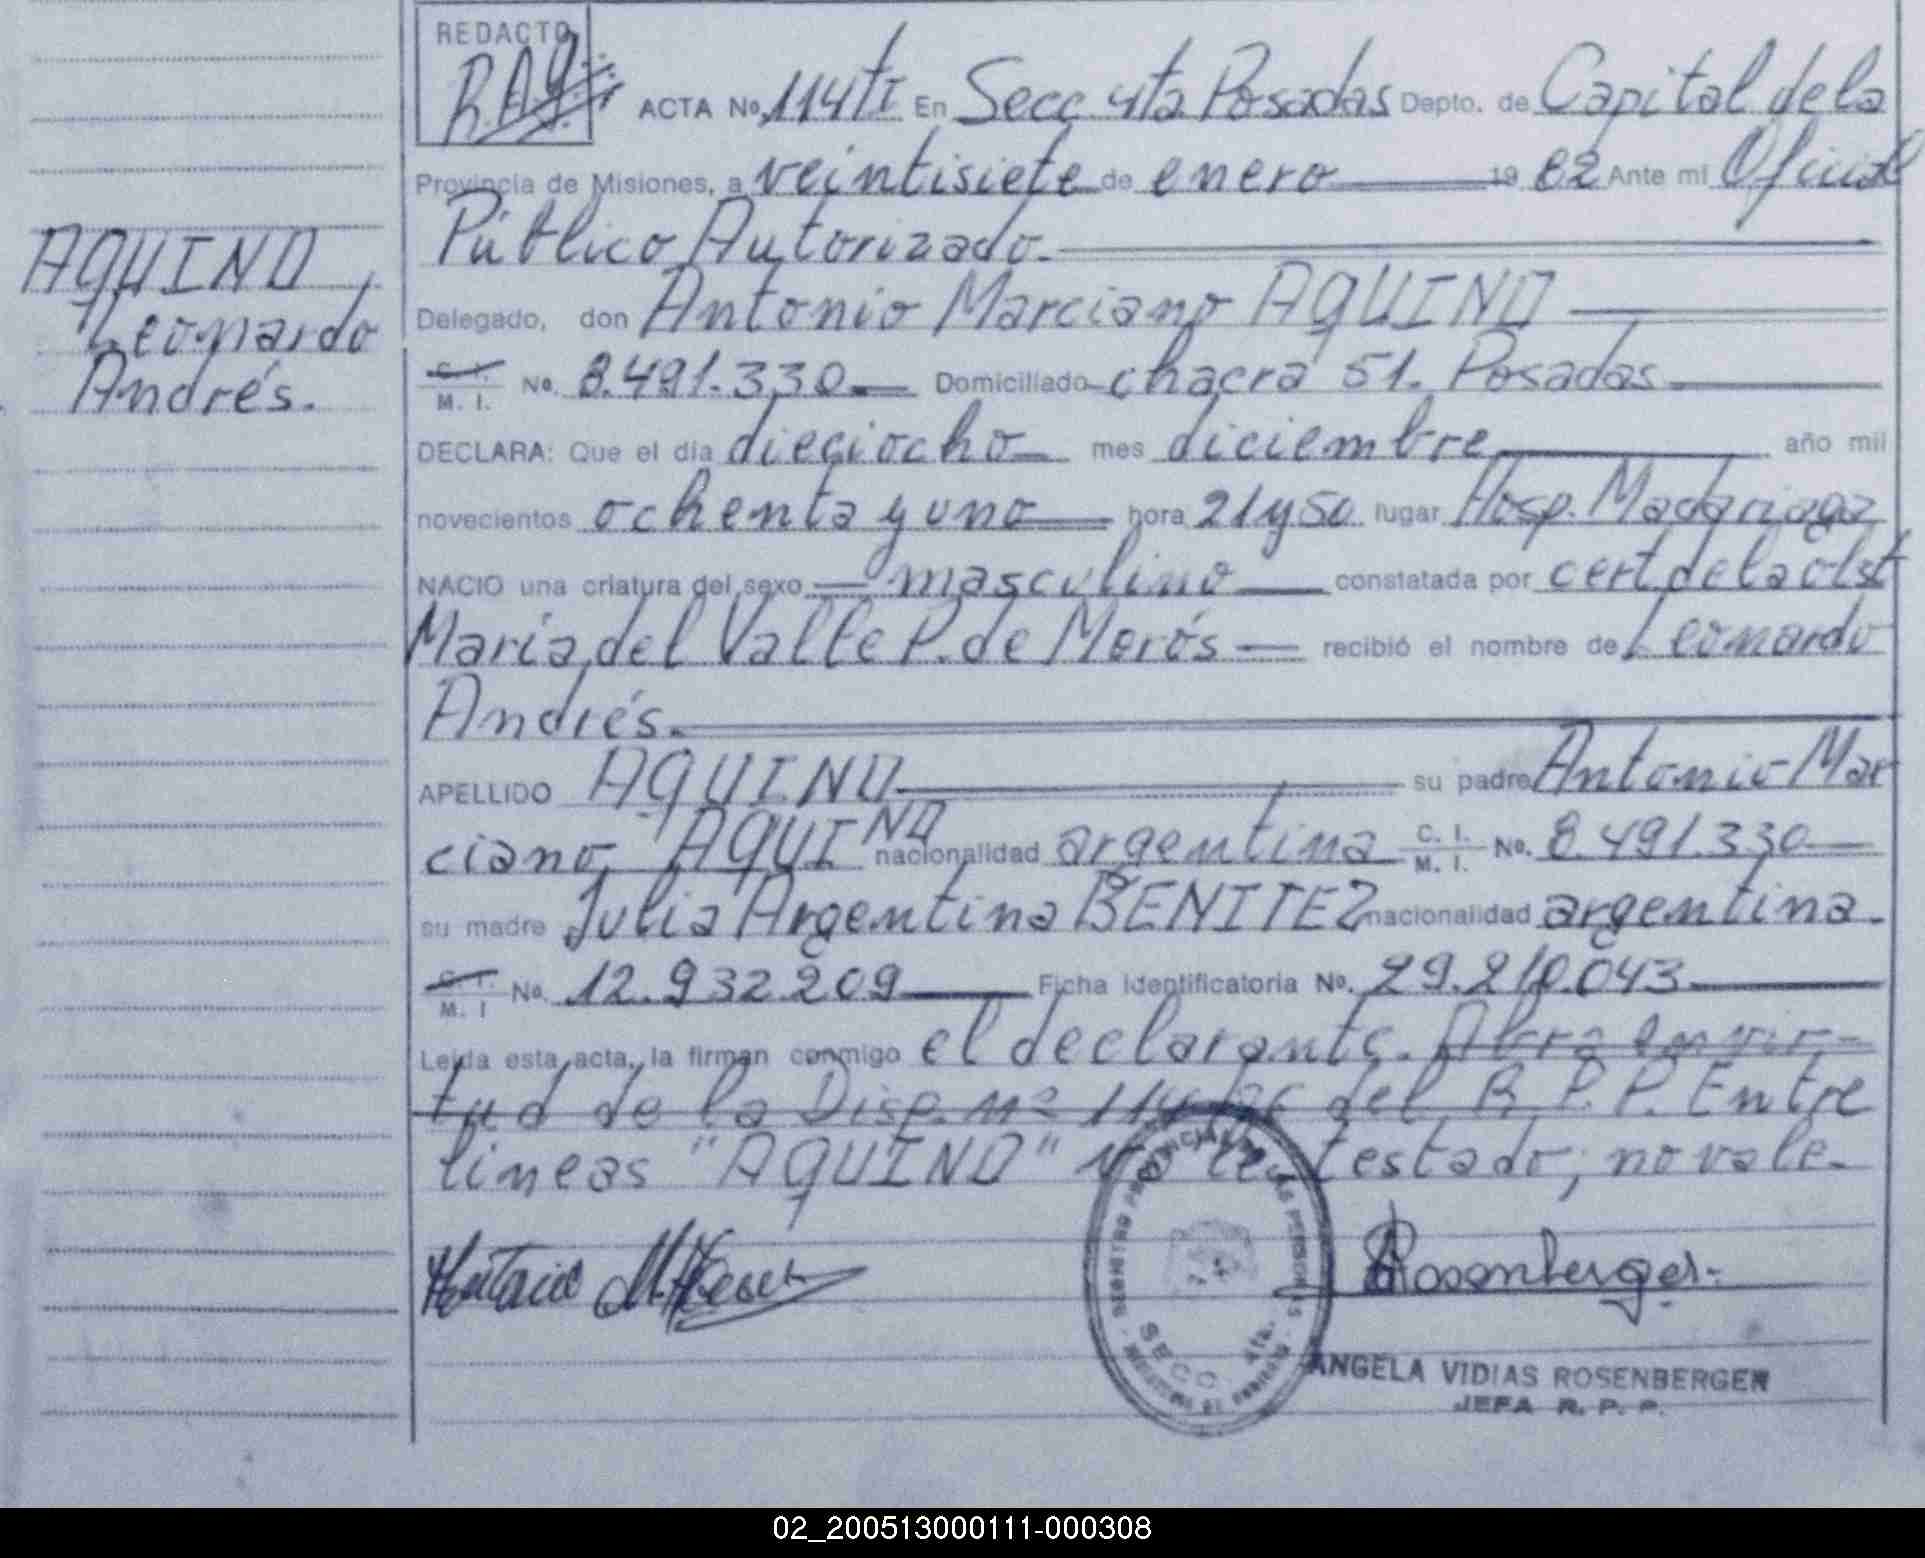 REDACTO
ACTA No. 114 TI En Secc. 4ta. Posadas Depto. de Capital de la
Provincia de Misiones, a veintisiete de enero 19 82 Ante mi Oficial
Público Autorizado.
Delegado, don Antonio Marciano AQUINO
AQUINO,
Leonardo
Andrés.
C. I.
M. I. No. 8.491.330 Domiciliado chacra 51. Posadas
DECLARA: Que el día dieciocho mes diciembre año mil
novecientos ochenta y uno hora 21 y 50 lugar Hosp. Madariaga
NACIO una criatura del sexo masculino constatada por cert. de la obst
María del Valle P. de Morós recibió el nombre de Leonardo
Andrés.
APELLIDO AQUINO su padre Antonio Mar
ciano AQUINO nacionalidad argentina C. I. M. I. No. 8.491.330
su madre Julia Argentina BENITEZ nacionalidad argentina.
C. I. M. I No. 12.932.209 Ficha identificatoria No. 29.210.043
Leida esta acta, la firman conmigo el declarante. Abro en vir-
tud de la Disp. nº del R. P. P. Entre
lineas "AQUINO" testado; no vale.
Rosenberger
SECC. 4ta.
ANGELA VIDIAS ROSENBERGER
JEFA R. P. P.
02_200513000111-000308